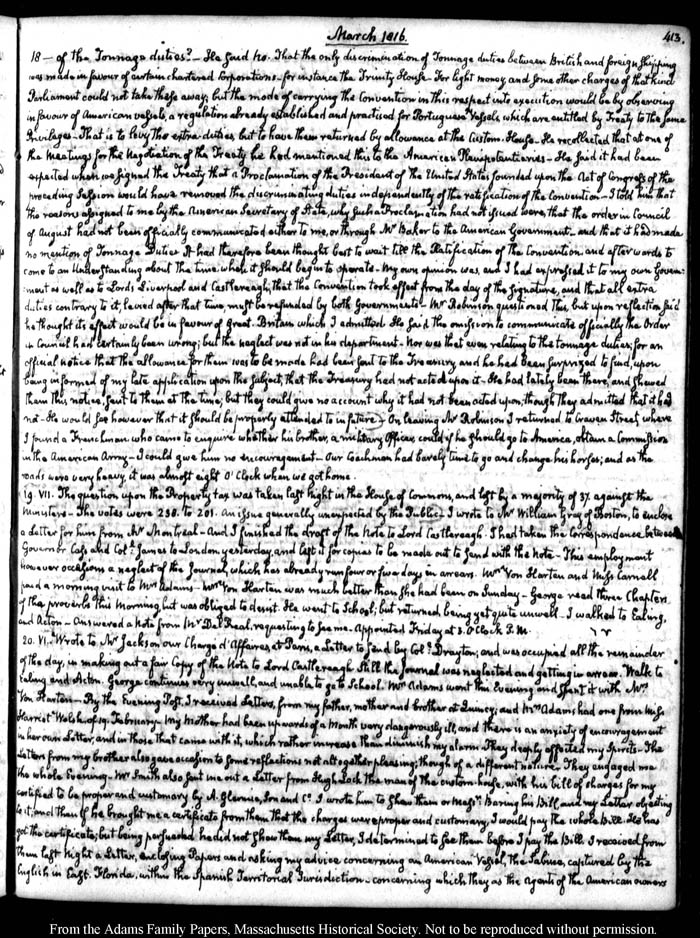 March 1816.
413.
18 — of the Tonnage duties? — He said no. That the only discrimination of Tonnage duties between British and foreign shipping
was made in favour of certain chartered Corporations — for instance the Trinity House — For light money, and some other charges of that kind
Parliament could not take these away; but the mode of carrying the Convention in this respect into execution would be by observing
in favour of American vessels, a regulation already established and practised for Portuguese Vessels, which are entitled by Treaty to the same
Privileges — That is to levy the extra-duties, but to have them returned by allowance at the Custom-House — He recollected that at one of
the Meetings for the Negotiation of the Treaty he had mentioned this to the American Plenipotentiaries — He said it had been
expected when we signed the Treaty that a Proclamation of the President of the United States founded upon the Act of Congress of the
preceding Session would have removed the discriminating duties independently of the ratification of the Convention — I told him that
the reasons assigned to me by the American Secretary of State, why such a Proclamation had not issued were, that the order in Council
of August had not been officially communicated either to me, or through Mr Baker to the American Government — and that it had made
no mention of Tonnage Duties. It had therefore been thought best to wait till the Ratification of the Convention and afterwards to
come to an Understanding about the time when it should begin to operate — My own opinion was, and I had expressed it to my own Govern-
ment as well as to Lords Liverpool and Castlereagh, that the Convention took effect from the day of the signature, and that all extra
duties contrary to it, levied after that time, must be refunded by both Governments — Mr Robinson questioned this, but upon reflection said
he thought its effect would be in favour of Great-Britain which I admitted. He said the omission to communicate officially the Order
in Council had certainly been wrong; but the neglect was not in his department — Nor was that even relating to the tonnage duties; for an
official notice that the allowance for them was to be made had been sent to the Treasury, and he had been surprized to find, upon
being informed of my late application upon the subject, that the Treasury had not acted upon it — He had lately been there, and shewed
them this notice, sent to them at the time, but they could give no account why it had not been acted upon, though they admitted that it had
not — He would see however that it should be properly attended to in future — On leaving Mr Robinson I returned to Craven Street, where
I found a Frenchman who came to enquire whether his brother, a military Officer, could if he should go to America, obtain a Commission
in the American Army — I could give him no encouragement — Our Coachman had barely time to go and change his horses; and as the
roads were very heavy, it was almost eight O'Clock when we got home.
19. VII. The question upon the Property tax was taken last Night in the House of Commons, and lost by a majority of 37 against the
Ministers — The votes were 238. to 201. An issue generally unexpected by the Public — I wrote to Mr William Gray of Boston, to enclose
a Letter for him from Mr Montreal — And I finished the draft of the Note to Lord Castlereagh. I had taken the Correspondence between
Governor Cass and Coll. James to London yesterday, and left it for copies to be made out to send with the note — This employment
however occasions a neglect of the Journal, which has already run four or five days in arrears. Mrs Von Harten and Miss Carnall
paid a morning visit to Mrs Adams — Mrs Von Harten was much better than she had been on Sunday — George read three Chapters
of the proverbs this Morning but was obliged to desist. He went to School; but returned, being yet quite unwell — I walked to Ealing,
and Acton — Answered a Note from Mr Del Real, requesting to see me. Appointed Friday at 3. O'Clock P.M.
20. VI. Wrote to Mr Jackson our Chargé d'Affaires at Paris, a Letter to send by Coll. Drayton; and was occupied all the remainder
of the day, in making out a fair Copy of the Note to Lord Castlereagh. Still the Journal was neglected and getting in arrear. Walk to
Ealing and Acton. George continues very unwell, and unable to go to School. Mrs Adams went this Evening and spent it with Mrs
Von Harten — By the Evening Post, I received Letters, from my father, mother and brother at Quincy; and Mrs Adams had one from Miss
Harriet Welsh, of 19. February. My Mother had been upwards of a Month very dangerously ill, and there is an anxiety of encouragement
in her own Letter, and in those that came with it, which rather increase than diminish my alarm. They deeply affected my Spirits — The
Letters from my brother also gave occasion to some reflections not altogether pleasing; though of a different nature. They engaged me
the whole Evening — Mr Smith also sent me out a Letter from Hugh Lack the man of the custom-house, with his bill of charges for my
certified to be proper and customary by A. Glennie, Son and Co. I wrote him to shew them or Messrs Baring his Bill and my Letter objecting
to it, and that if he brought me a certificate from them that the charges were proper and customary, I would pay the whole Bill. He has
got the certificate, but being persuaded he did not shew them my Letter, I determined to see them before I pay the Bill. I received from
them last Night a Letter, enclosing Papers and asking my advice concerning an American Vessel, the Sabine, captured by the
English in East-Florida, within the Spanish Territorial Jurisdiction — concerning which they as the agents of the American owners
From the Adams Family Papers, Massachusetts Historical Society. Not to be reproduced without permission.